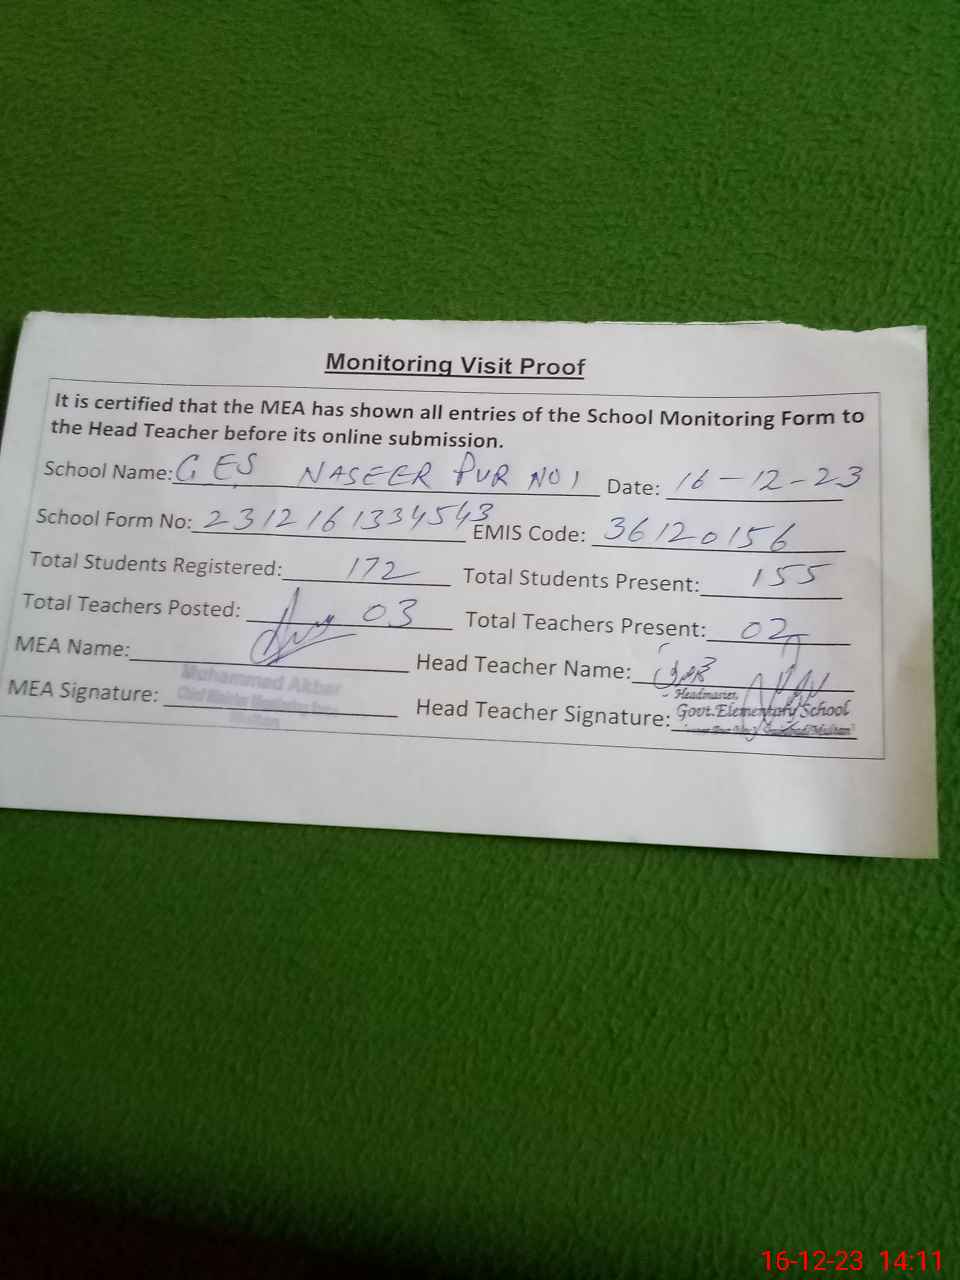 Monitoring Visit Proof
It is certified that the MEA has shown all entries of the School Monitoring Form to
the Head Teacher before its online submission.
School Name: GES NASEER PUR NO 1 Date: 16-12-23
School Form No: 2312161334543 EMIS Code: 36120156
Total Students Registered: 172 Total Students Present: 155
Total Teachers Posted: 03 Total Teachers Present: 02
MEA Name: Head Teacher Name:
Muhammad Akbar
Headmaster,
MEA Signature: Head Teacher Signature: Govt. Elementary School
Multan
16-12-23 14:11